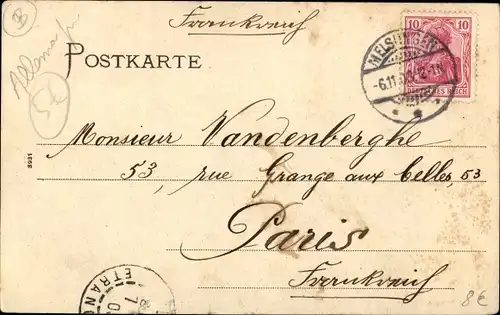 B
Frankreich
Allemagne
5€
POSTKARTE
10 10
DEUTSCHES REICH
MELSUNGEN
-6.11.
Monsieur Vandenberghe
53, rue Grange aux belles, 53
3931
Paris
Frankreich
ETRANG
7
8€